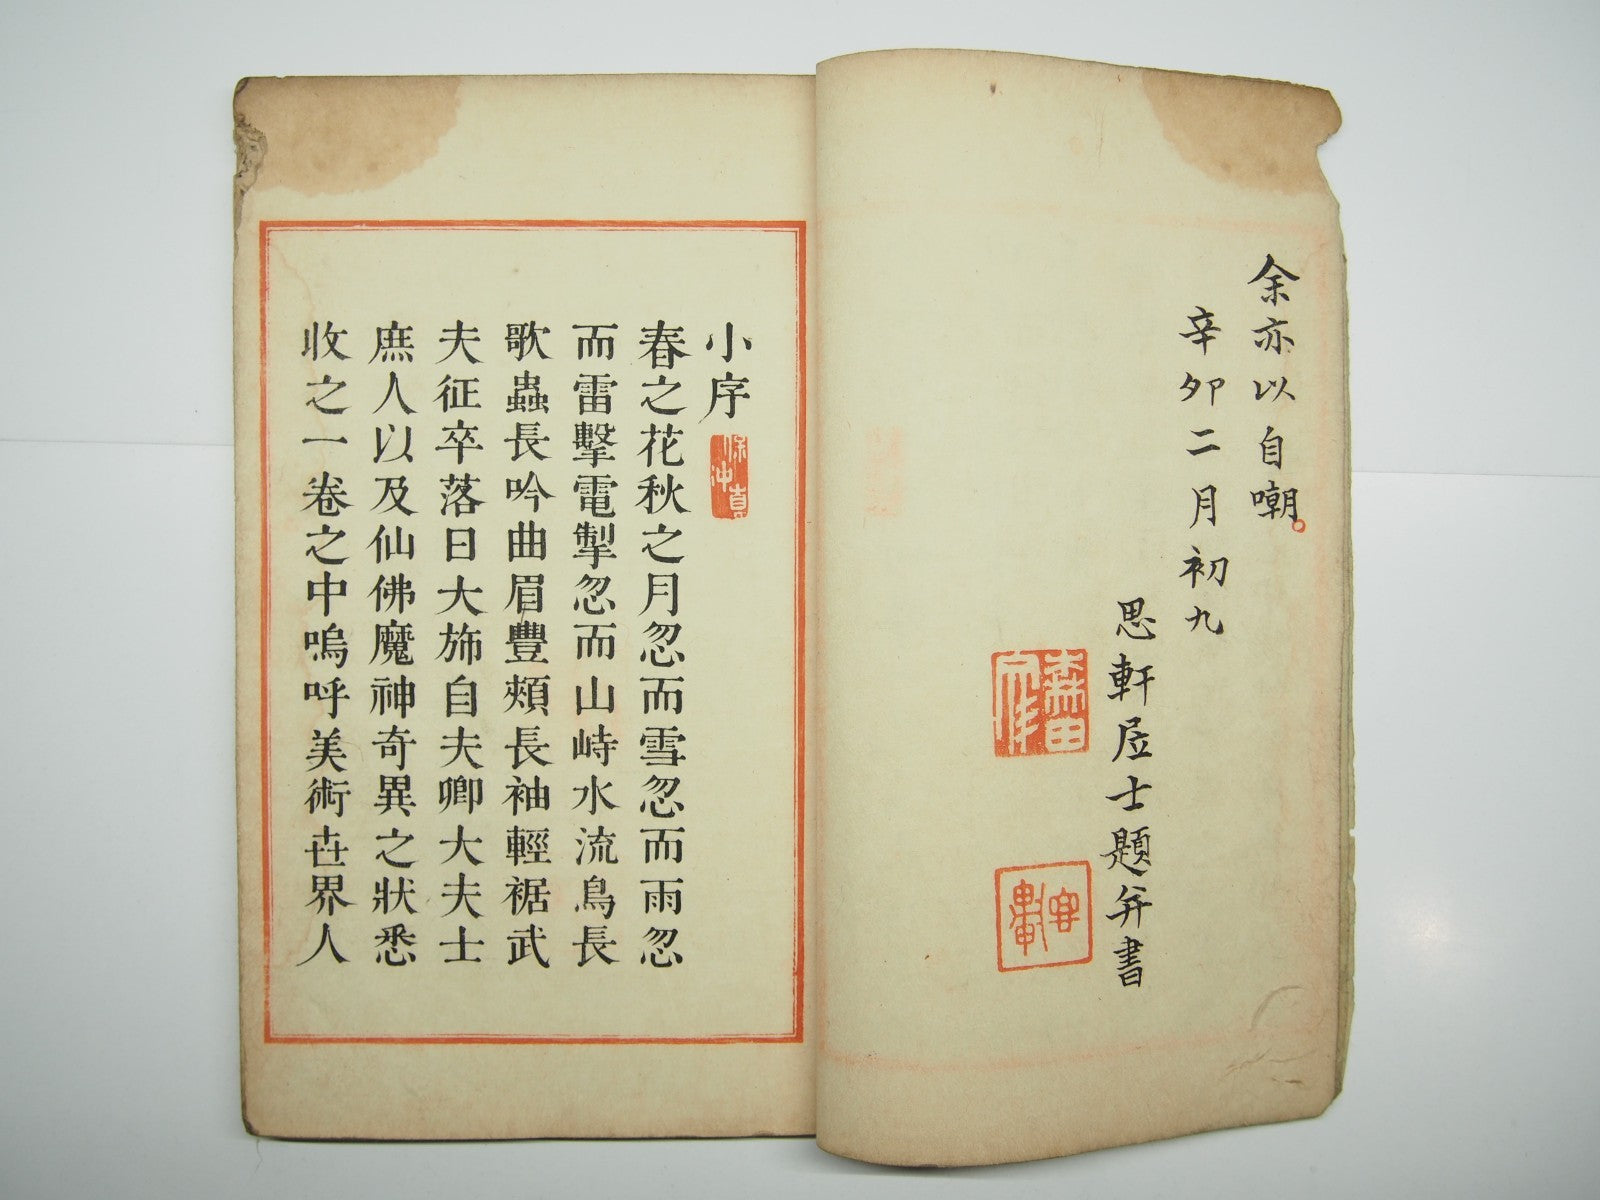 余亦以自嘲。
辛卯二月初九
思軒居士題并書
小序
春之花秋之月忽而雪忽而雨忽
而雷擊電掣忽而山峙水流鳥長
歌蟲長吟曲眉豐頰長袖輕裾武
夫征卒落日大斾自夫卿大夫士
庶人以及仙佛魔神奇異之狀悉
收之一卷之中嗚呼美術世界人